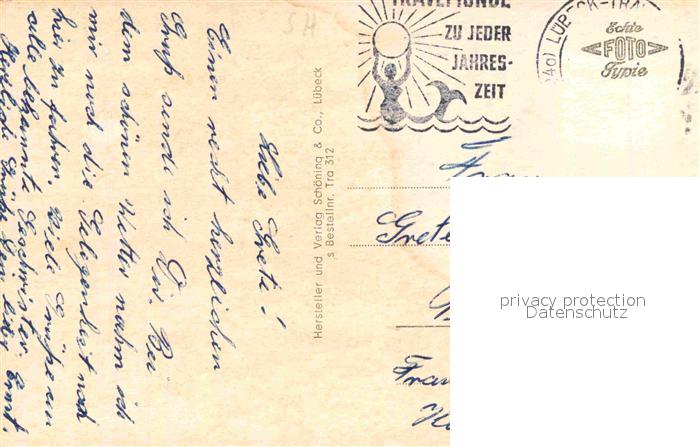 SH
TRAVEMÜNDE
ZU JEDER
JAHRES-
ZEIT
LÜBECK-TRA
Echte
FOTO
Typie
Liebe Grete!
Einen recht herzlichen
Gruß sende ich Dir. Bei
dem schönen Wetter nahm ich
mir noch die Gelegenheit noch
hier zu fahren. Viele Grüße an
alle bekannte Geschwister.
Herzliche Grüße Dein lieber Ernst.
Hersteller und Verlag Schöning & Co., Lübeck
s Bestellnr. Tra 312
Frau
Grete
privacy protection
Datenschutz